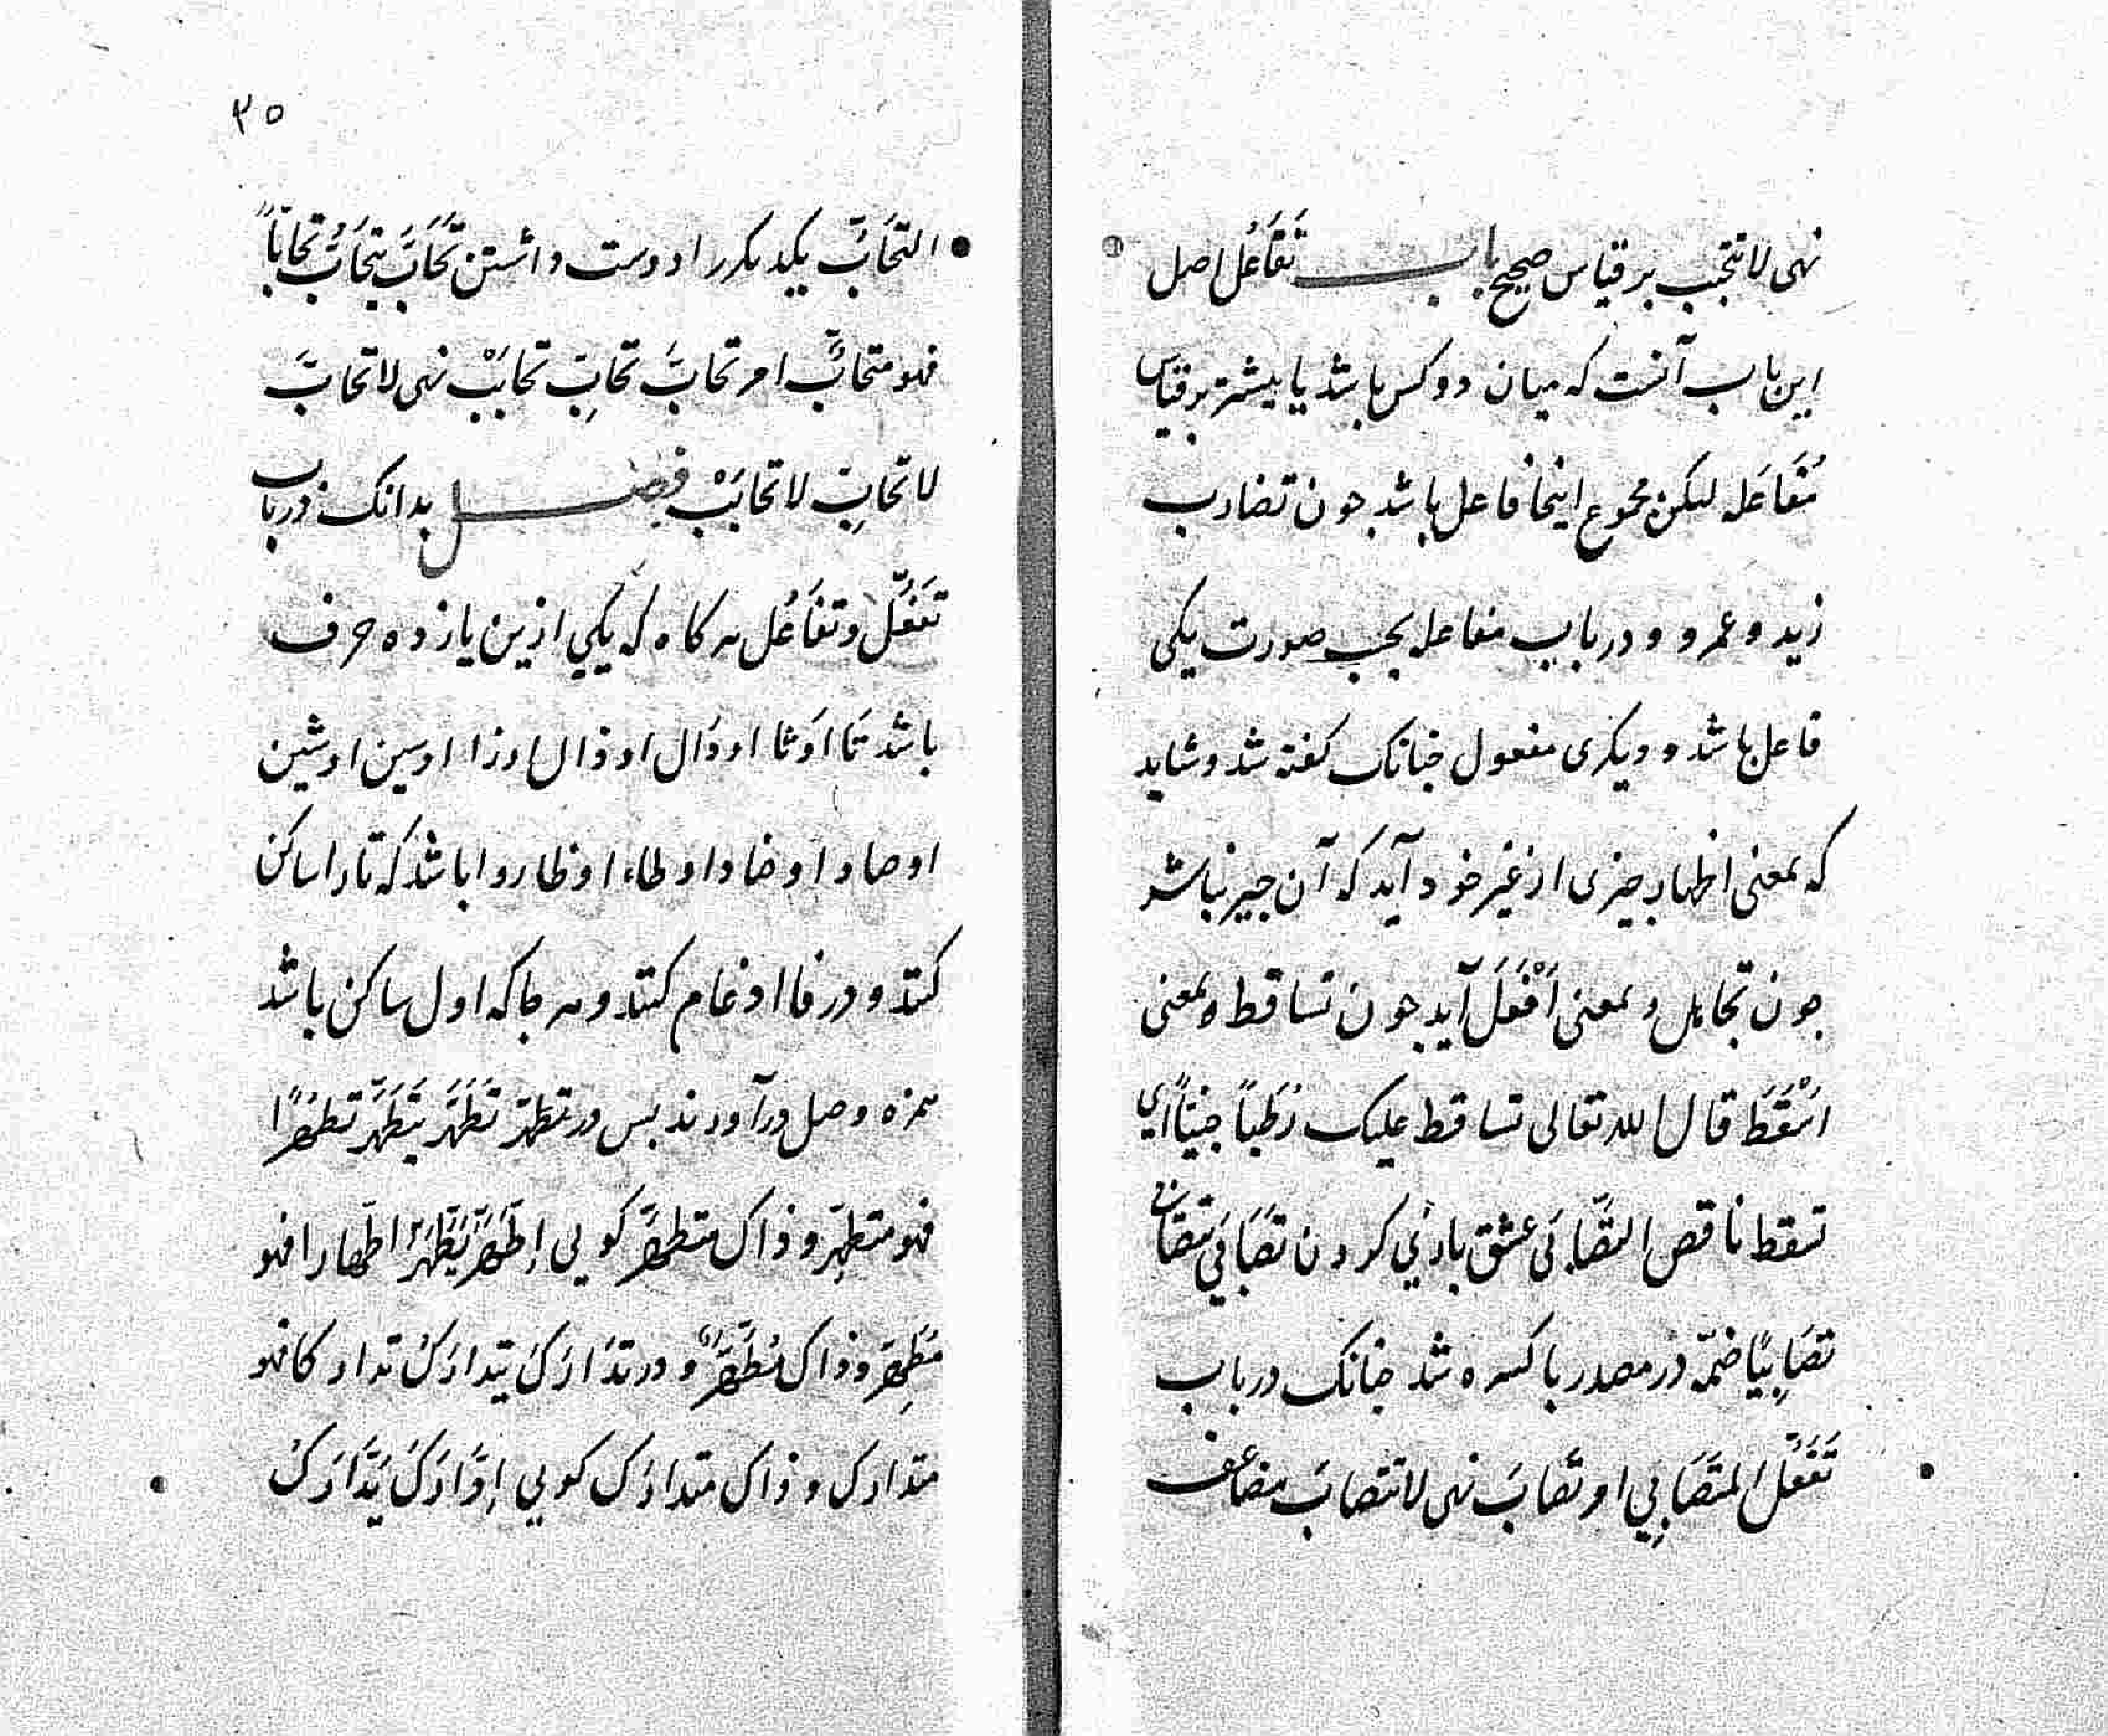 نهی لا تتحبب بر قیاس صحیح باب تَفَاعُل اصل
این باب آنست که میان دو کس باشد یا بیشتر بر قیاس
مُفَاعَله لیکن مجموع اینجا فاعل باشد جون تضارب
زید و عمرو و در باب مفاعله بحسب صورت یکی
فاعل باشد و دیکری مفعول جنانک کفته شد و شاید
که بمعنی اظهار جیزی از غیر خود آید که آن جیز نباشد
جون تجاهل و بمعنی اَفْعَلَ آید جون تساقط و بمعنی
اَسْقَطَ قال الله تعالی تساقط علیک رُطَباً جنیّاً ای
تسقط ناقص التصَّابی عشق بازئی کردن تصَابَی یتصَابی
تصَابِیًا ضمّه در مصدر با کسره شد جنانک در باب
تَفَعُّل المتصَابِی امر تصابَ نهی لا تتصابَ مضاعف
۳۵
التحَابّ یکدیکر را دوست داشتن تحَابَّ یتحَابُّ تحاباً
فهو متحابٌّ امر تحابَّ تحابِّ تحابَبْ نهی لا تحابَّ
لا تحابِّ لا تحابَبْ فصل بدانک در باب
تَفَعُّل و تفَاعُل هر کاه که یکی ازین یازده حرف
باشد تا او ثا او دال او ذال او زا او سین او شین
او صاد او ضاد او طاء او ظا روا باشد که تا را ساکن
کنند و در فا ادغام کنند و هر جا که اول ساکن باشد
همزه وصل درآورند بس در تطهّر تَطَهَّرَ یَتَطَهَّرُ تطهُّرًا
فهو متطهِّر و ذاک متطهَّر کویی اِطَّهَّرَ یَطَّهَّرُ اطّهارا فهو
مُطَّهِّر و ذاک مُطَّهَّرٌ و در تدَارَکَ یتدارَکُ تدارکا فهو
متدارک و ذاک متدارَک کویی اِدَّارَکَ یَدَّارَکُ